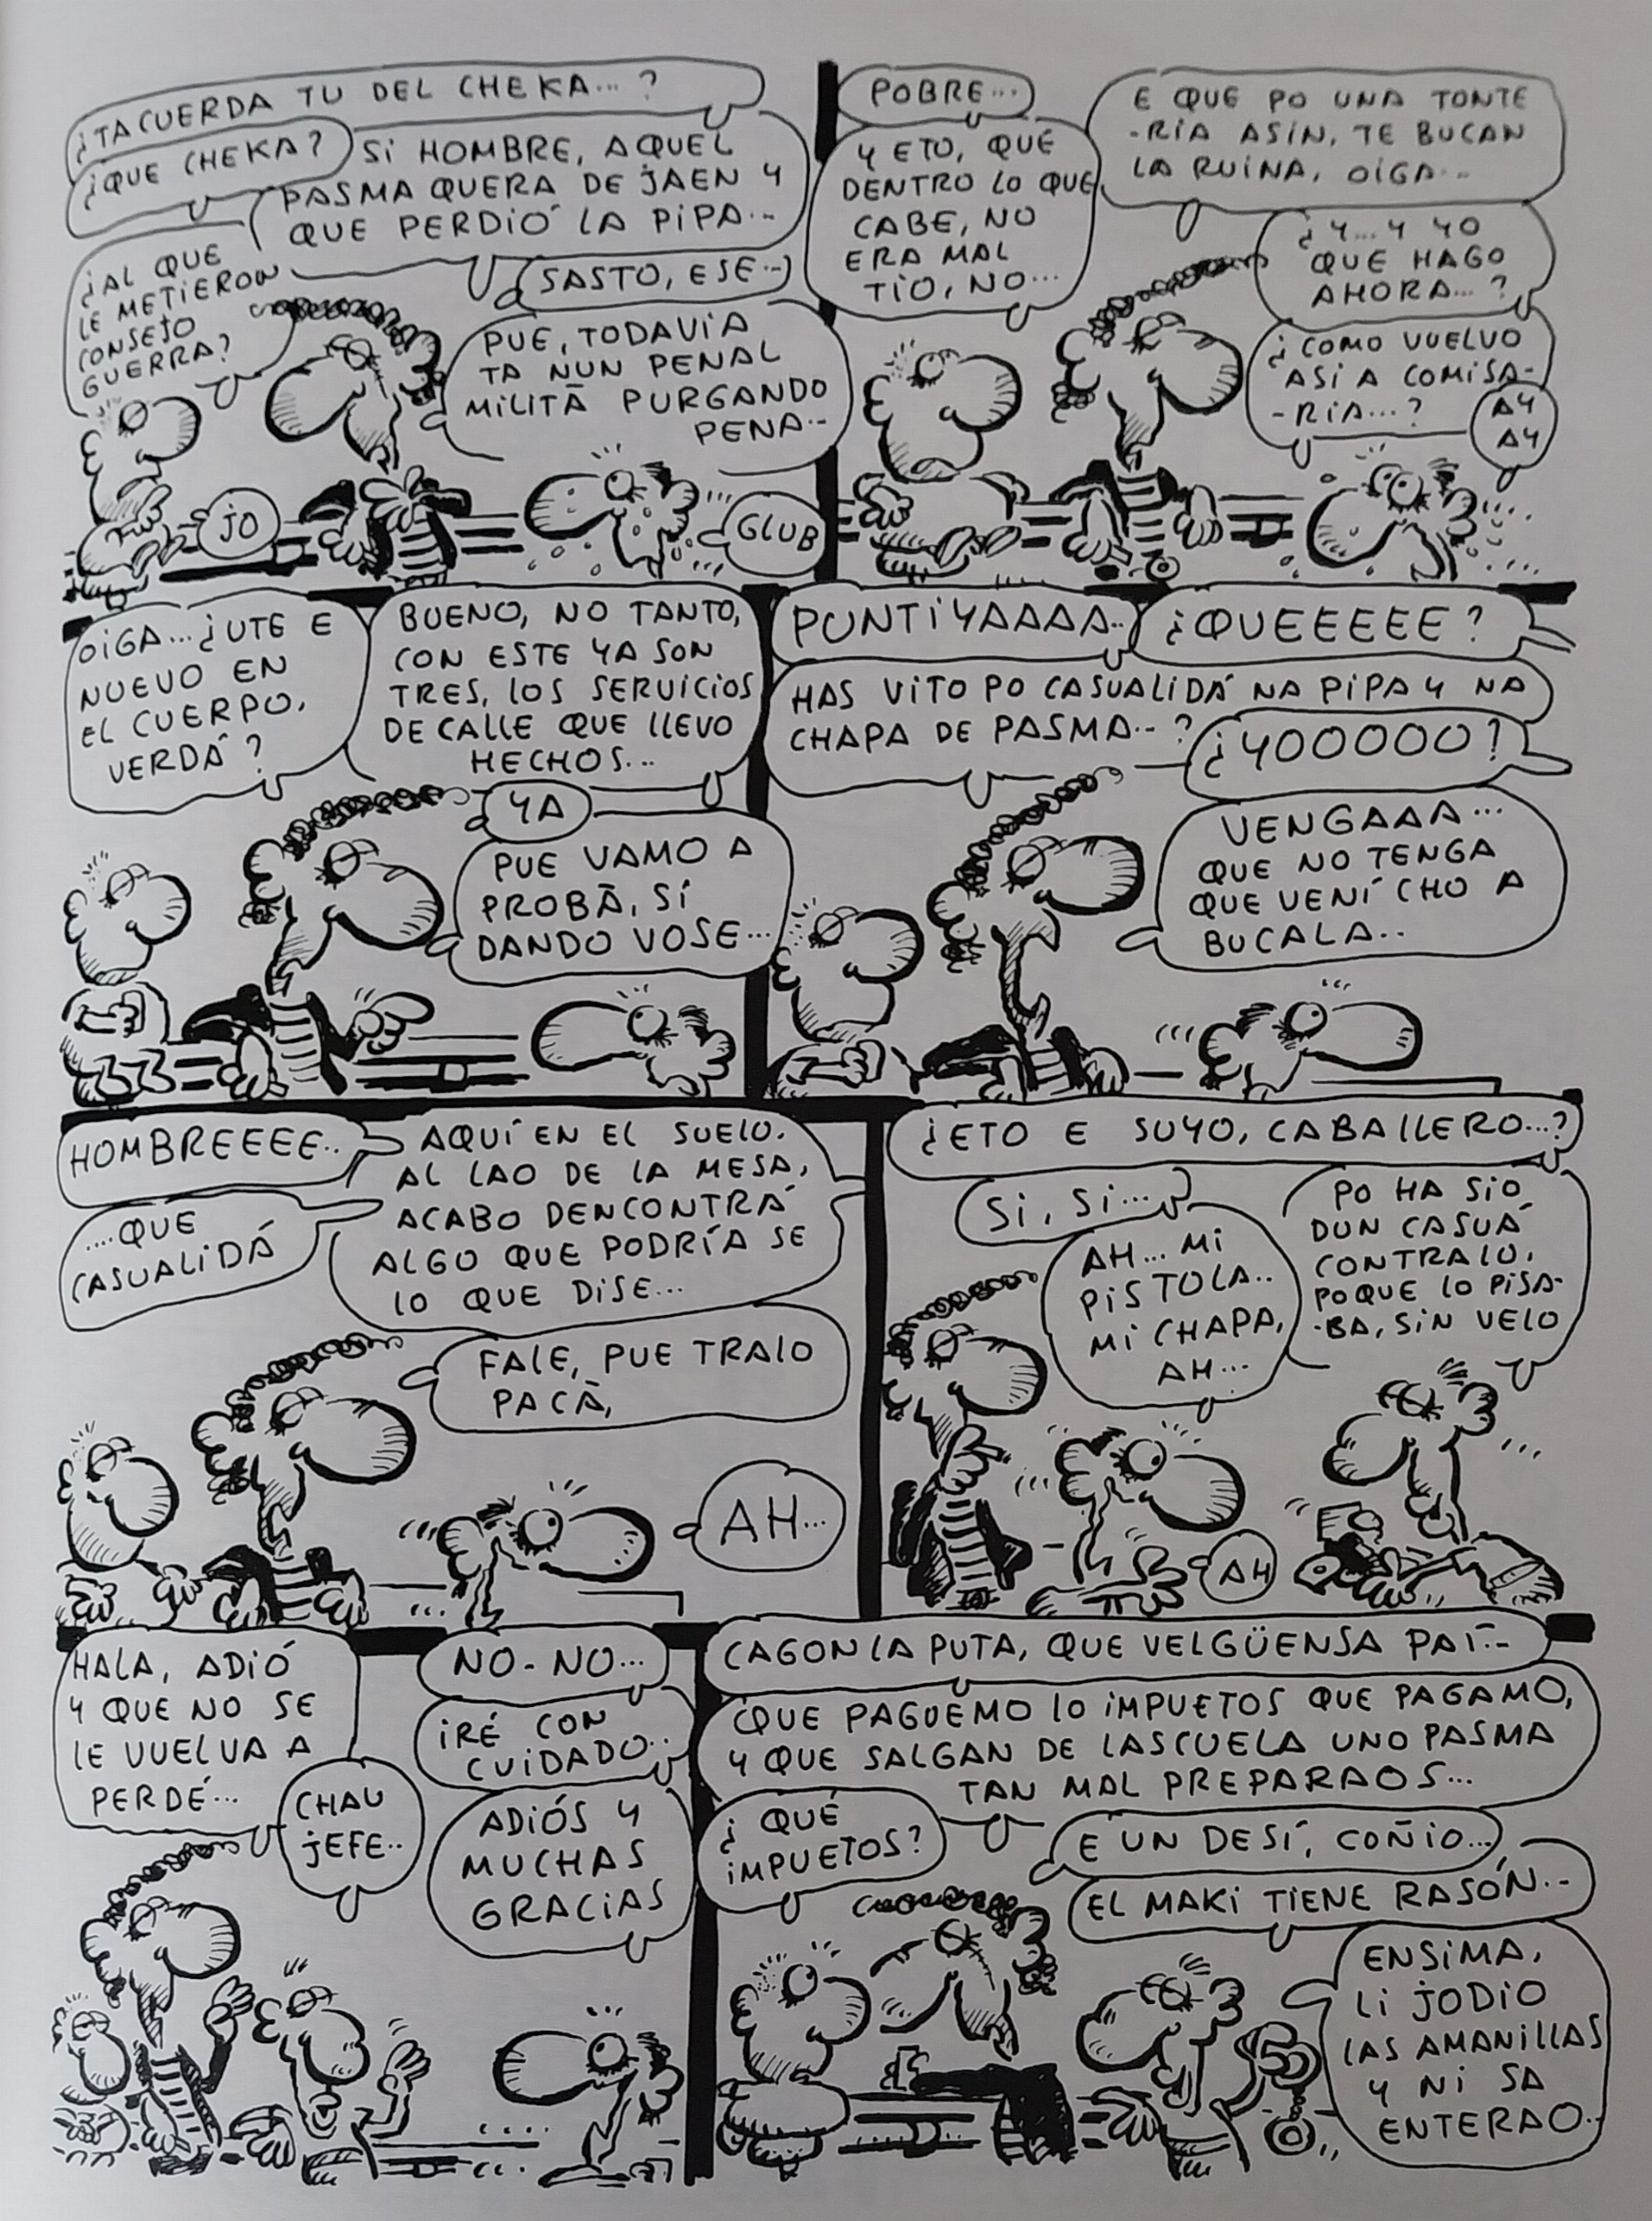 ¿TACUERDA TU DEL CHEKA...?
¿QUE CHEKA?
SI HOMBRE, AQUEL
PASMA QUERA DE JAEN Y
QUE PERDIÓ LA PIPA...
¿AL QUE
LE METIERON
CONSEJO
GUERRA?
SASTO, ESE...
PUE, TODAVIA
TA NUN PENAL
MILITĀ PURGANDO
PENA...
JO
GLUB
POBRE...
Y ETO, QUE
DENTRO LO QUE
CABE, NO
ERA MAL
TIO, NO...
E QUE PO UNA TONTE
-RIA ASIN, TE BUCAN
LA RUINA, OIGA...
¿Y... Y YO
QUE HAGO
AHORA...?
¿COMO VUELVO
ASI A COMISA-
-RIA...?
AY
AY
OIGA... ¿UTE E
NUEVO EN
EL CUERPO,
VERDÁ?
BUENO, NO TANTO,
CON ESTE YA SON
TRES, LOS SERVICIOS
DE CALLE QUE LLEVO
HECHOS...
YA
PUE VAMO A
PROBĀ, SI
DANDO VOSE...
PUNTIYAAAA..
¿QUEEEEE?
HAS VITO PO CASUALIDÁ NA PIPA Y NA
CHAPA DE PASMA...?
¿YOOOOO?
VENGAAA...
QUE NO TENGA
QUE VENÍ CHO A
BUCALA..
HOMBREEEE..
....QUE
CASUALIDÁ
AQUÍ EN EL SUELO.
AL LAO DE LA MESA,
ACABO DENCONTRÁ
ALGO QUE PODRÍA SE
LO QUE DISE...
FALE, PUE TRALO
PACĀ,
AH...
¿ETO E SUYO, CABALLERO...?
SI, SI...
AH... MI
PISTOLA..
MI CHAPA,
AH...
PO HA SIO
DUN CASUÁ
CONTRALO,
POQUE LO PISA-
-BA, SIN VELO
AH
HALA, ADIÓ
Y QUE NO SE
LE VUELVA A
PERDÉ...
CHAU
JEFE..
NO-NO...
IRÉ CON
CUIDADO..
ADIÓS Y
MUCHAS
GRACIAS
CAGONLA PUTA, QUE VELGÜENSA PAÍ...
QUE PAGUEMO LO IMPUETOS QUE PAGAMO,
Y QUE SALGAN DE LASCUELA UNO PASMA
TAN MAL PREPARAOS...
¿QUÉ
IMPUETOS?
E UN DESÍ, COÑIO...
EL MAKI TIENE RASÓN...
ENSIMA,
LI JODIO
LAS AMANILLAS
Y NI SA
ENTERAO..